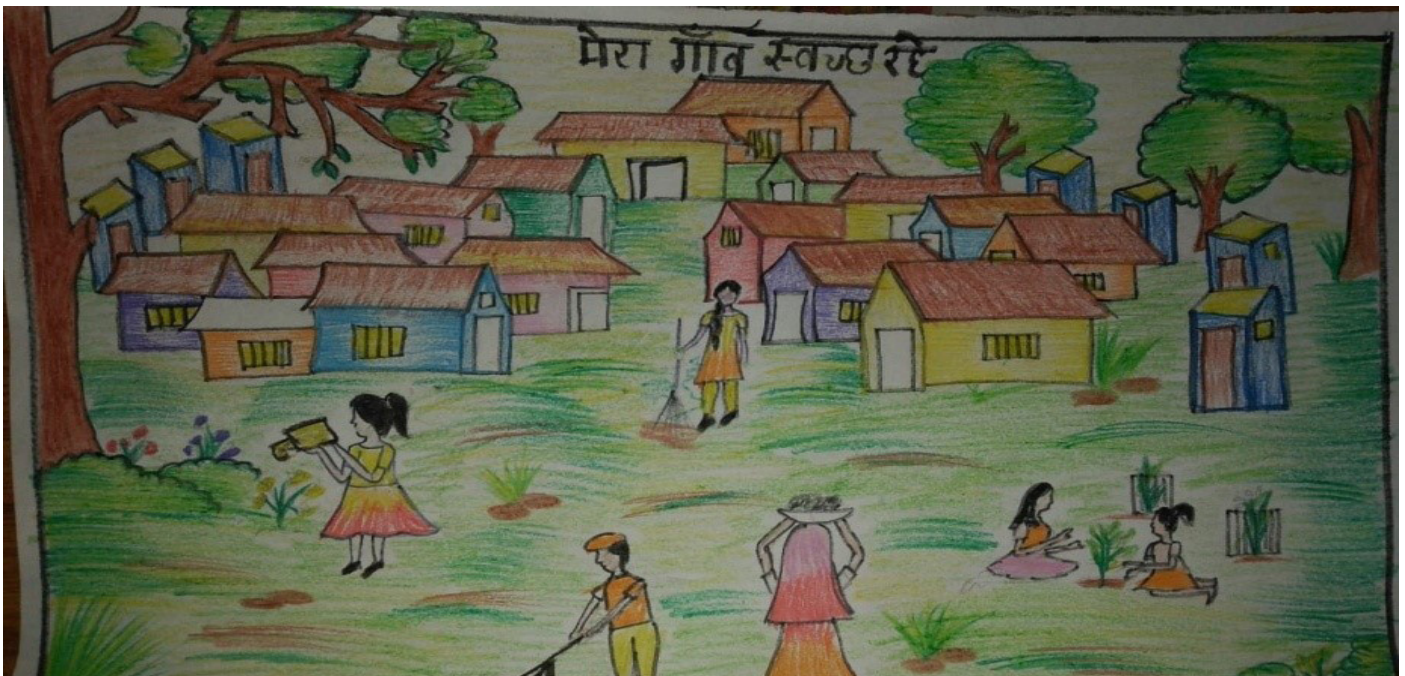 मेरा गाँव स्वच्छ रहे